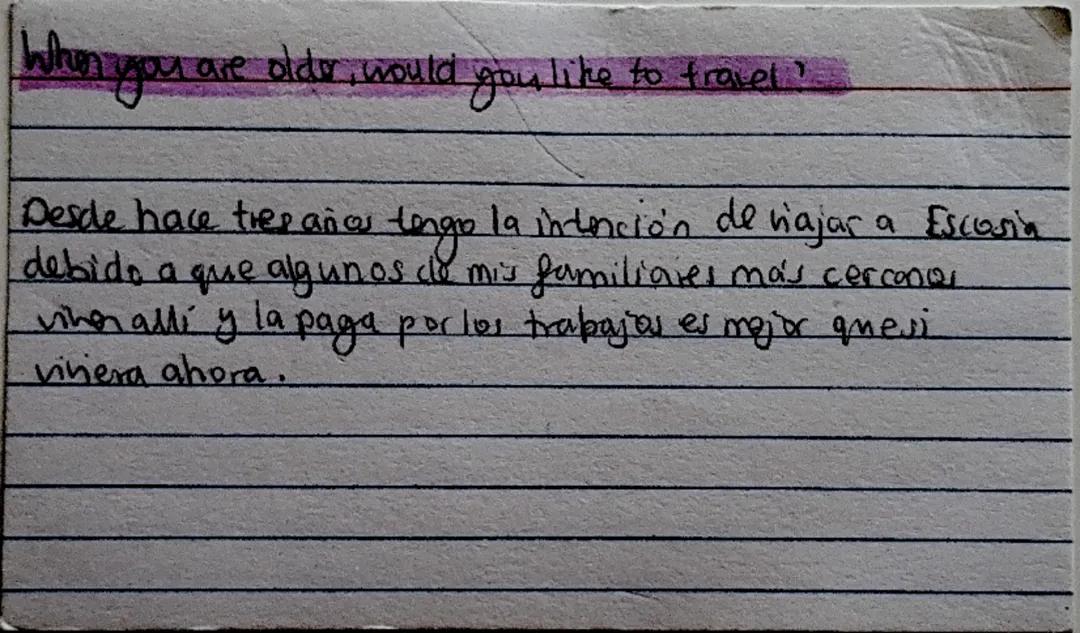 When you are older, would you like to travel?
Desde hace tres años tengo la intención de viajar a Escosia
debido a que algunos de mis familiares más cercanos
viven allí y la paga por los trabajos es mejor que si
viviera ahora.